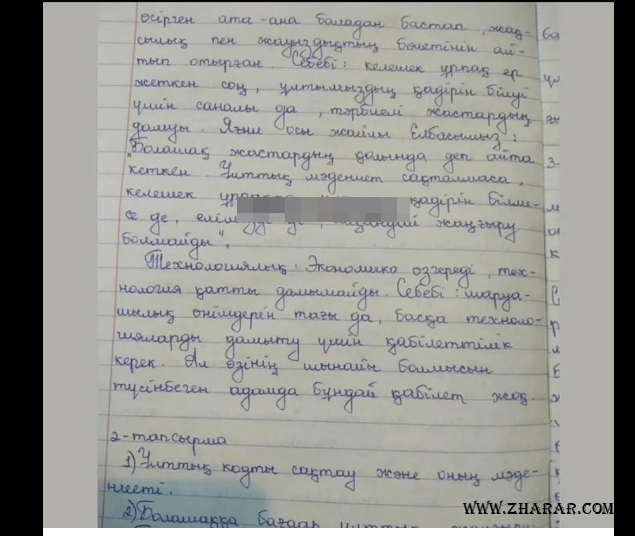 өсірген ата-ана баладан бастап, жақ-
сылық пен жауыздықтың бөлетінін ай-
тып отырған. Себебі: келешек ұрпақ ер
жеткен соң, ұлтымыздың қадірін білуі
үшін саналы да, тәрбиелі жастардың
дамуы. Яғни осы жайлы Елбасымыз:
"Болашақ жастардың қолында деп айта
кеткен. Ұлттық мәдениет сақталмаса,
келешек қадірін білме-
се де, жаңғыру
болмайды".
Технологиялық: Экономика өзгереді, тех-
нология қатты дамымайды. Себебі: шаруа-
шылық өнімдерін тағы да, басқа техноло-
гияларды дамыту үшін қабілеттілік
керек. Ал өзінің шынайы болмысын
түсінбеген адамда бұндай қабілет жоқ.
2-тапсырма
1) Ұлттық кодты сақтау және оның мәде-
ниеті.
WWW.ZHARAR.COM
2) Болашаққа бағдар ұлттық